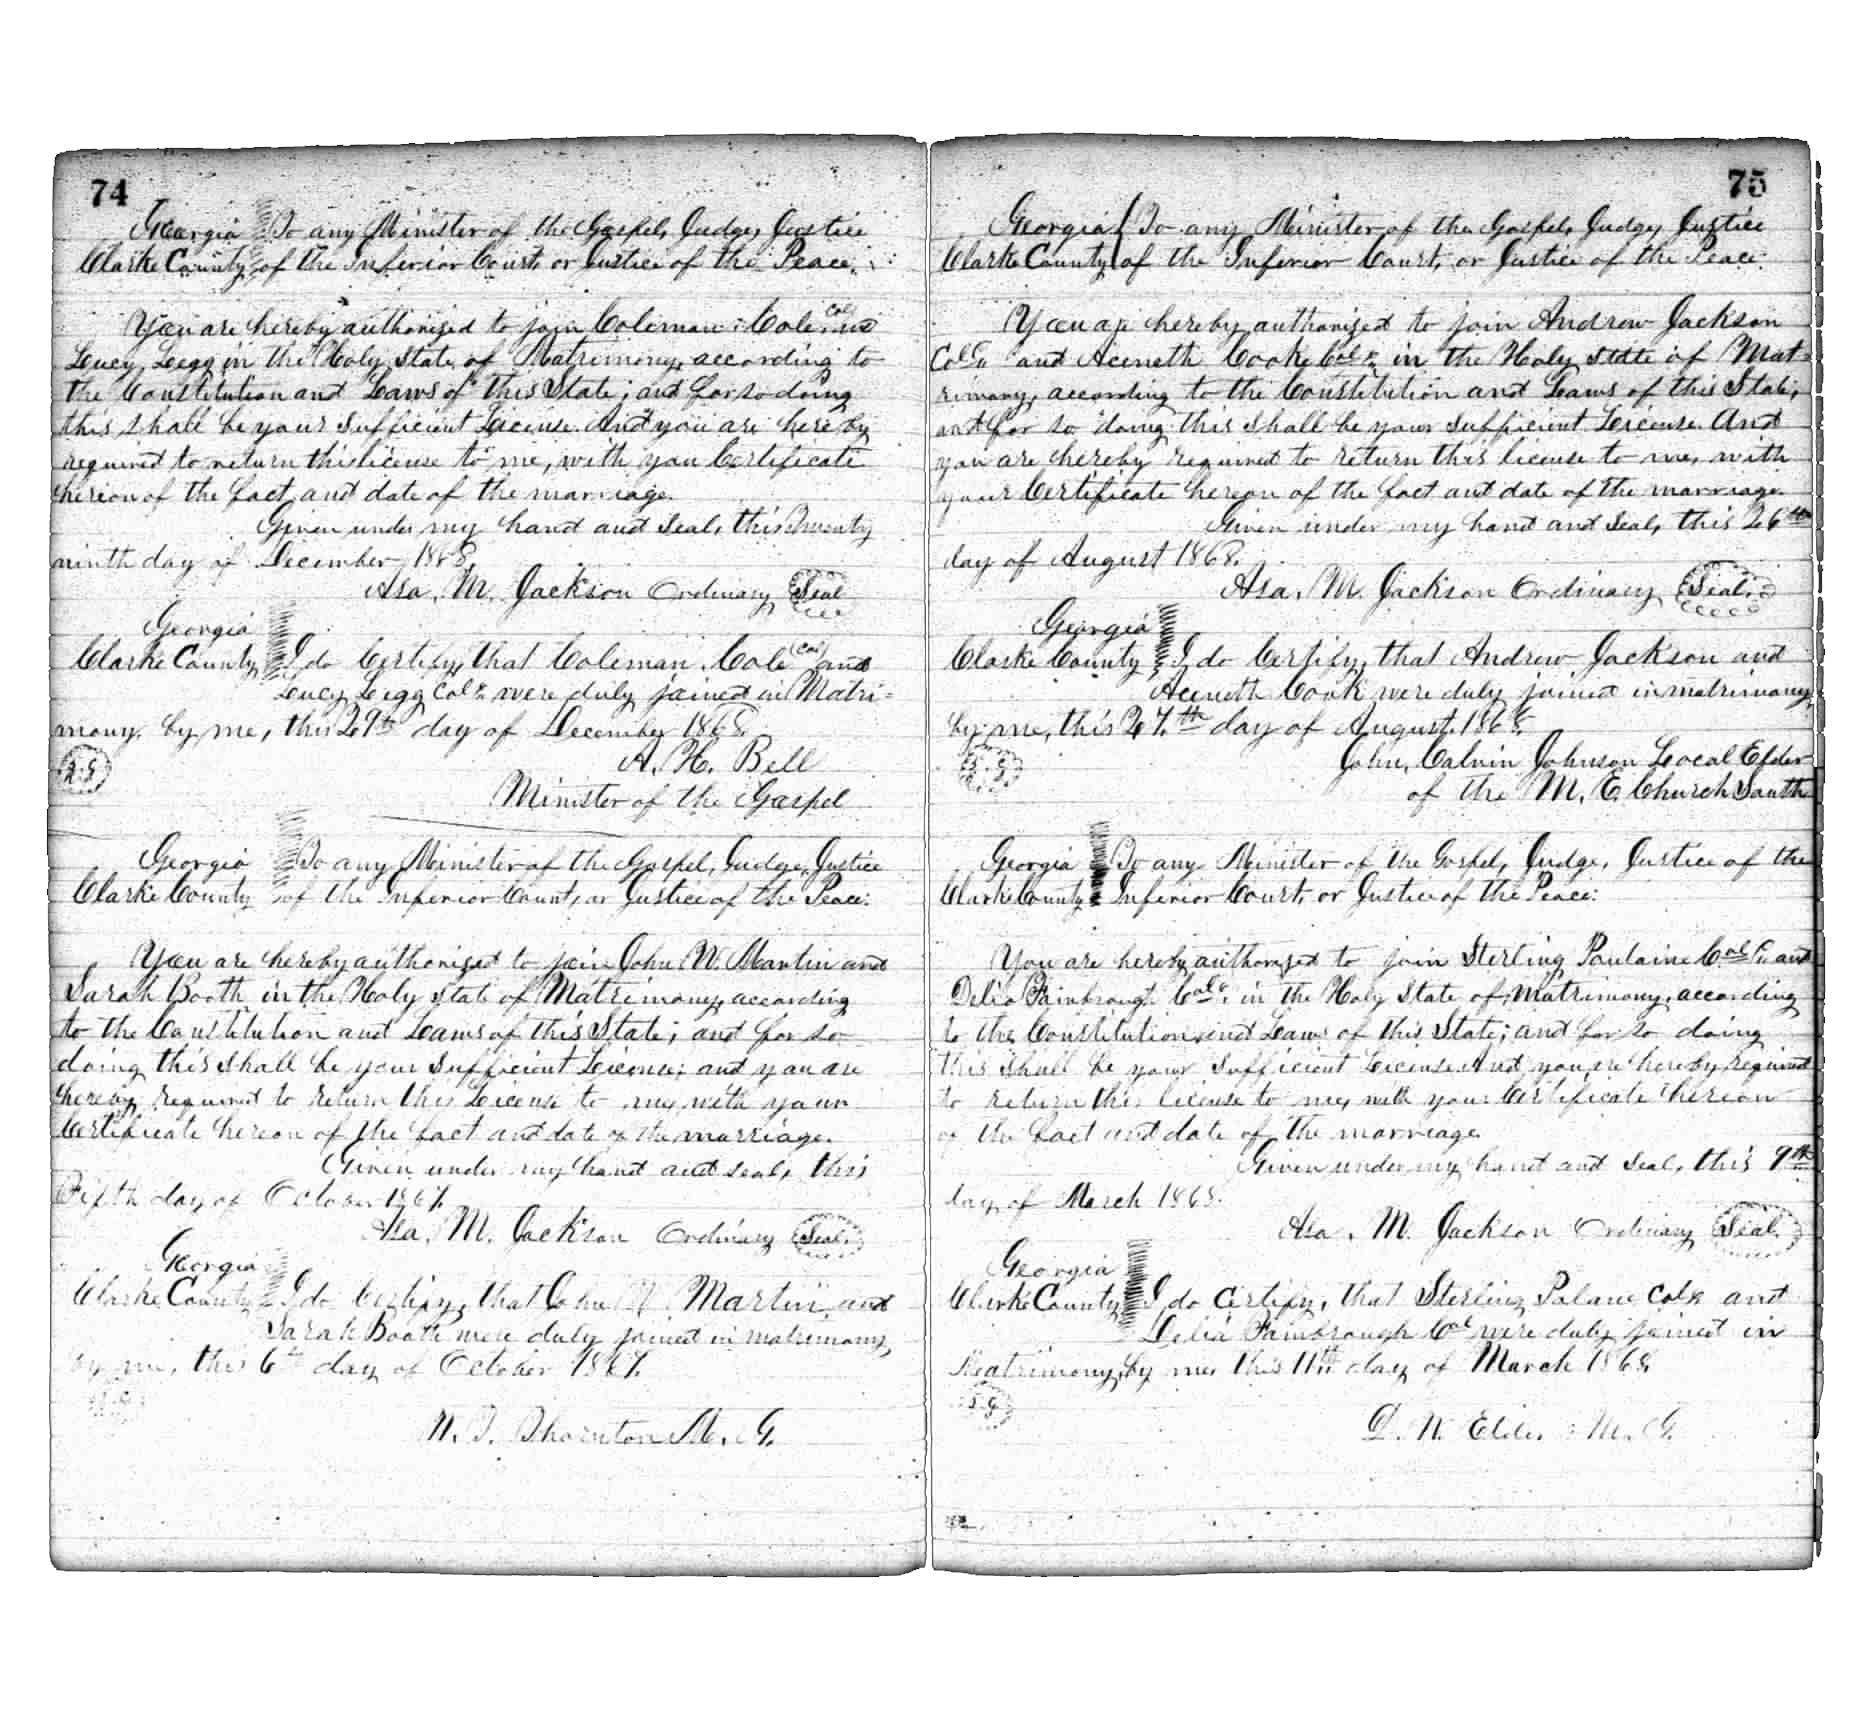 74
Georgia To any Minister of the Gospel, Judge, Justice
Clarke County of the Inferior Court, or Justice of the Peace.
You are hereby authorized to join Coleman Cole Col and
Lucy Legg in the Holy state of Matrimony, according to
the Constitution and Laws of this State; and for so doing
this shall be your sufficient License. And you are hereby
required to return this license to me, with you Certificate
hereon of the fact and date of the marriage.
Given under my hand and seal, this Twenty
ninth day of December 1868.
Asa. M. Jackson Ordinary Seal
Georgia
Clarke County I do Certify, that Coleman Cole (Col) and
Lucy Legg Cold were duly joined in Matri=
mony by me, this 29th day of December 1868.
A. H. Bell
Minister of the Gospel
Georgia To any Minister of the Gospel, Judge, Justice
Clarke County of the Inferior Court, or Justice of the Peace.
You are hereby authorized to join John W. Martin and
Sarah Booth in the Holy state of Matrimony, according
to the Constitution and Laws of this State; and for so
doing this shall be your sufficient License; and you are
hereby required to return this License to me, with your
Certificate hereon of the fact and date of the marriage.
Given under my hand and seal, this
Fifth day of October 1867.
Asa. M. Jackson Ordinary Seal.
Georgia
Clarke County I do Certify, that John W. Martin and
Sarah Booth were duly joined in matrimony
by me, this 6th day of October 1867.
W. T. Thornton M. G.
75
Georgia To any Minister of the Gospel, Judge, Justice
Clarke County of the Inferior Court, or Justice of the Peace.
You are hereby authorized to join Andrew Jackson
Cold and Aceneth Cooke Cold in the Holy state of Mat=
rimony, according to the Constitution and Laws of this State,
and for so doing this shall be your sufficient License. And
you are hereby required to return this license to me, with
your Certificate hereon of the fact and date of the marriage.
Given under my hand and seal, this 26th
day of August 1868.
Asa. M. Jackson Ordinary Seal.
Georgia
Clarke County I do Certify, that Andrew Jackson and
Aceneth Cook were duly joined in matrimony
by me, this 27th day of August 1868.
John Calvin Johnson Local Elder
of the M. E. Church South
Georgia To any Minister of the Gospel, Judge, Justice of the
Clarke County Inferior Court, or Justice of the Peace:
You are hereby authorized to join Sterling Paulaine Cold and
Delia Fambrough Cold in the Holy State of Matrimony, according
to the Constitution and Laws of this State; and for so doing
this shall be your sufficient License. And you are hereby required
to return this license to me, with your Certificate hereon
of the fact and date of the marriage.
Given under my hand and seal, this 9th
day of March 1868.
Asa. M. Jackson Ordinary Seal.
Georgia
Clarke County I do Certify, that Sterling Palane Cold and
Delia Fambrough Col were duly joined in
Matrimony, by me, this 11th day of March 1868.
D. N. Elder M. G.